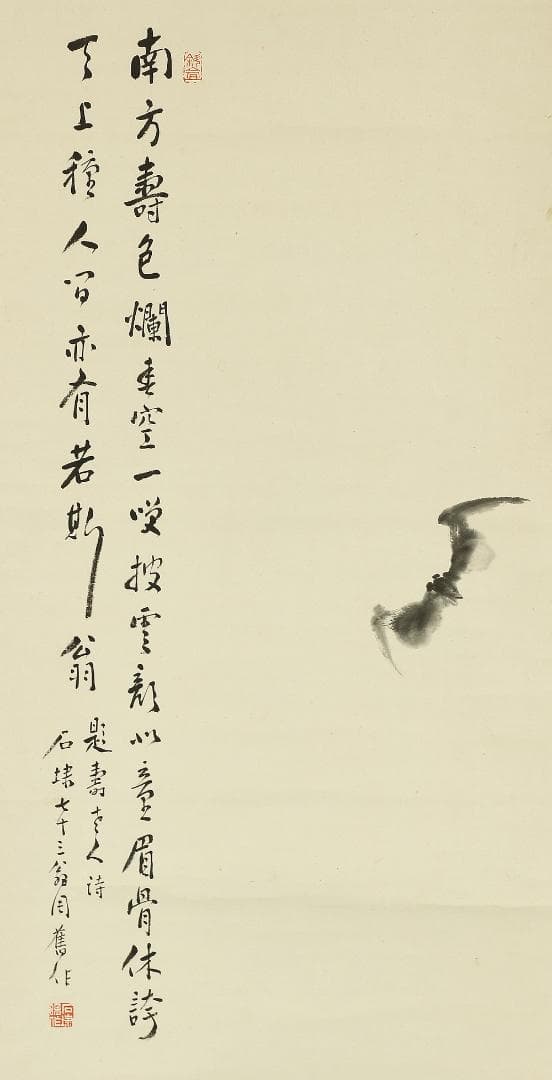 南方壽色爛垂空一笑披雲顏似童眉骨休誇
天上種人間亦有若斯翁
題壽老人詩
石埭七十三翁用舊作